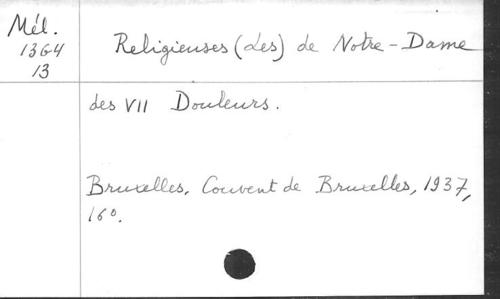 Mél.
1364
13
Religieuses (Les) de Notre-Dame
des VII Douleurs.
Bruxelles, Couvent de Bruxelles, 1937,
16°.